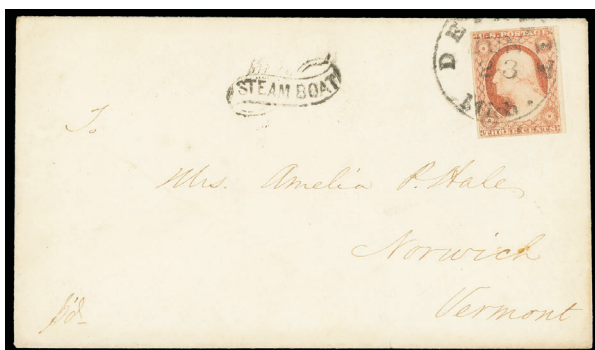 STEAM BOAT
DETROIT
3
MICH.
U.S. POSTAGE
THREE CENTS
To
Mrs. Amelia P. Hale,
Norwich
Vermont